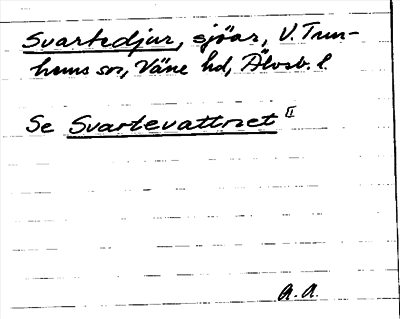 Svartedjur, sjöar, V. Tun-
hems sn, Väne hd, Älvsb. l.
Se Svartevattnet II
A. A.